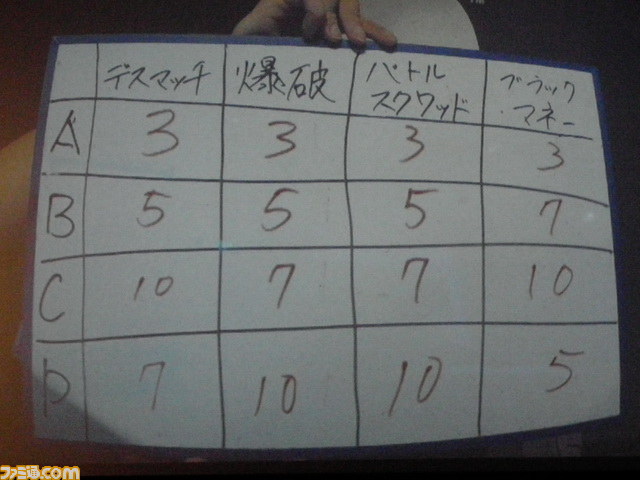 デスマッチ 爆破 バトルスクワッド ブラックマネー
A 3 3 3 3
B 5 5 5 7
C 10 7 7 10
D 7 10 10 5
ファミ通.com